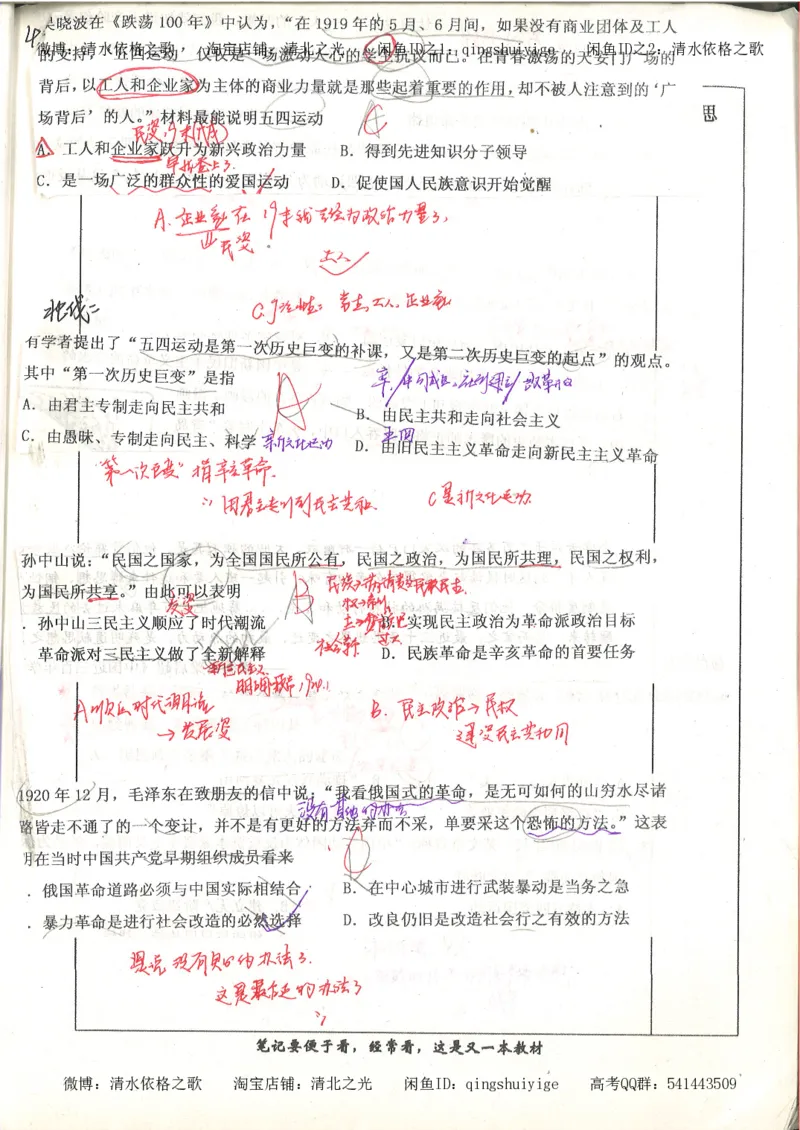 吴晓波在《跌荡100年》中认为，“在1919年的5月、6月间，如果没有商业团体及工人
微博：清水依格之歌 淘宝店铺：清北之光 闲鱼ID之1：qingshuiyige 闲鱼ID之2：清水依格之歌
的支持，‘五四运动’仅仅是一场激动人心的学生抗议而已。在青春激荡的天安门广场的
背后，以工人和企业家为主体的商业力量就是那些起着重要的作用，却不被人注意到的‘广
场背后’的人。”材料最能说明五四运动
A．工人和企业家跃升为新兴政治力量 B．得到先进知识分子领导
早就登上了
C．是一场广泛的群众性的爱国运动 D．促使国人民族意识开始觉醒
民资
工人
有学者提出了“五四运动是第一次历史巨变的补课，又是第二次历史巨变的起点”的观点。
其中“第一次历史巨变”是指
A．由君主专制走向民主共和 B．由民主共和走向社会主义
C．由愚昧、专制走向民主、科学 新文化运动 D．由旧民主主义革命走向新民主主义革命
五四
“第一次巨变”指辛亥革命.
∴由君主专制到民主共和. C是新文化运动.
孙中山说：“民国之国家，为全国国民所公有，民国之政治，为国民所共理，民国之权利，
为国民所共享。”由此可以表明
．孙中山三民主义顺应了时代潮流 B．实现民主政治为革命派政治目标
革命派对三民主义做了全新解释 D．民族革命是辛亥革命的首要任务
A顺应时代潮流
→发展资
B. 民主政治→民权
建资民主共和国
1920年12月，毛泽东在致朋友的信中说：“我看俄国式的革命，是无可如何的山穷水尽诸
没有其他的办法
路皆走不通了的一个变计，并不是有更好的方法弃而不采，单要采这个恐怖的方法。”这表
明在当时中国共产党早期组织成员看来
．俄国革命道路必须与中国实际相结合 B．在中心城市进行武装暴动是当务之急
．暴力革命是进行社会改造的必然选择 D．改良仍旧是改造社会行之有效的方法
是说没有别的办法了.
这是最后的办法了
笔记要便于看，经常看，这是又一本教材
微博：清水依格之歌 淘宝店铺：清北之光 闲鱼ID：qingshuiyige 高考QQ群：541443509